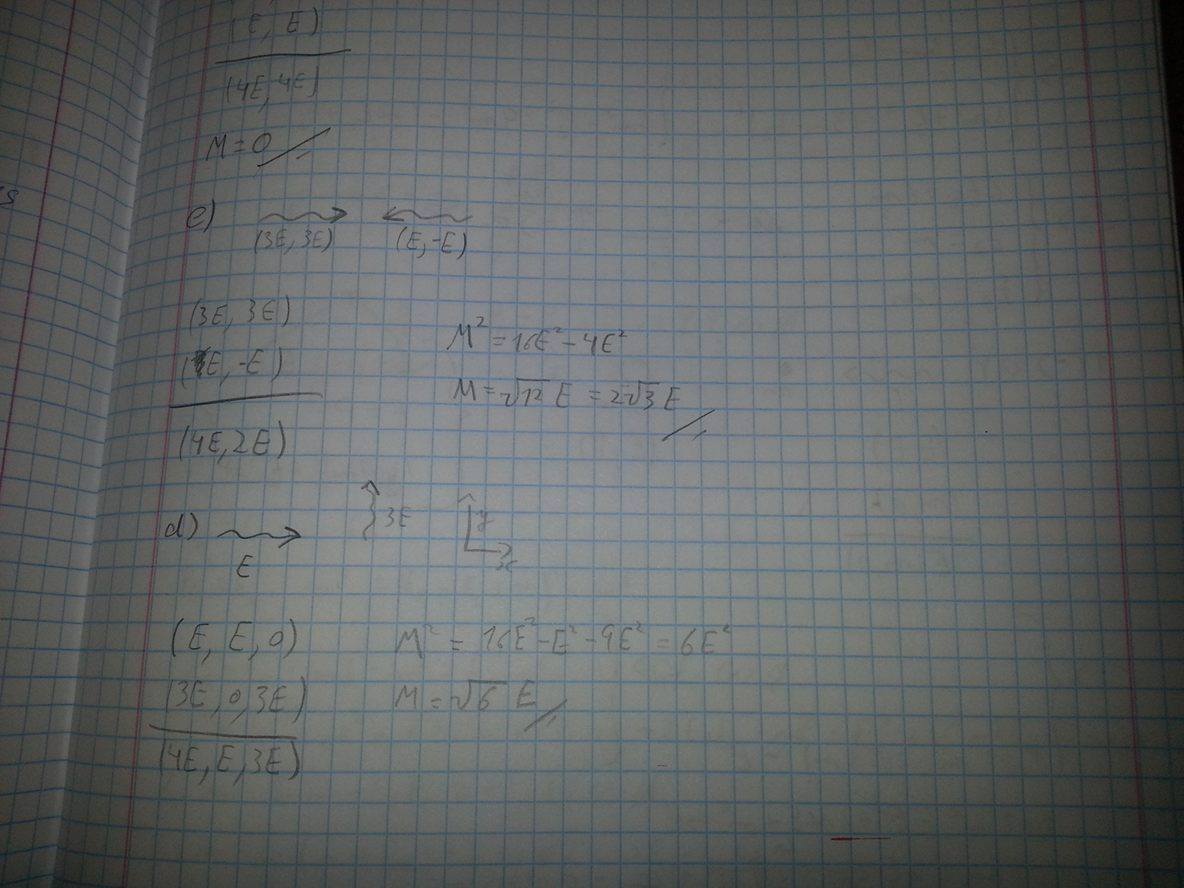 (E, E)
(4E, 4E)
M = 0
c)
(3E, 3E) (E, -E)
(3E, 3E)
(E, -E)
(4E, 2E)
M² = 16E² - 4E²
M = √12 E = 2√3 E
d)
E
3E
y
x
(E, E, 0)
(3E, 0, 3E)
(4E, E, 3E)
M² = 16E² - E² - 9E² = 6E²
M = √6 E